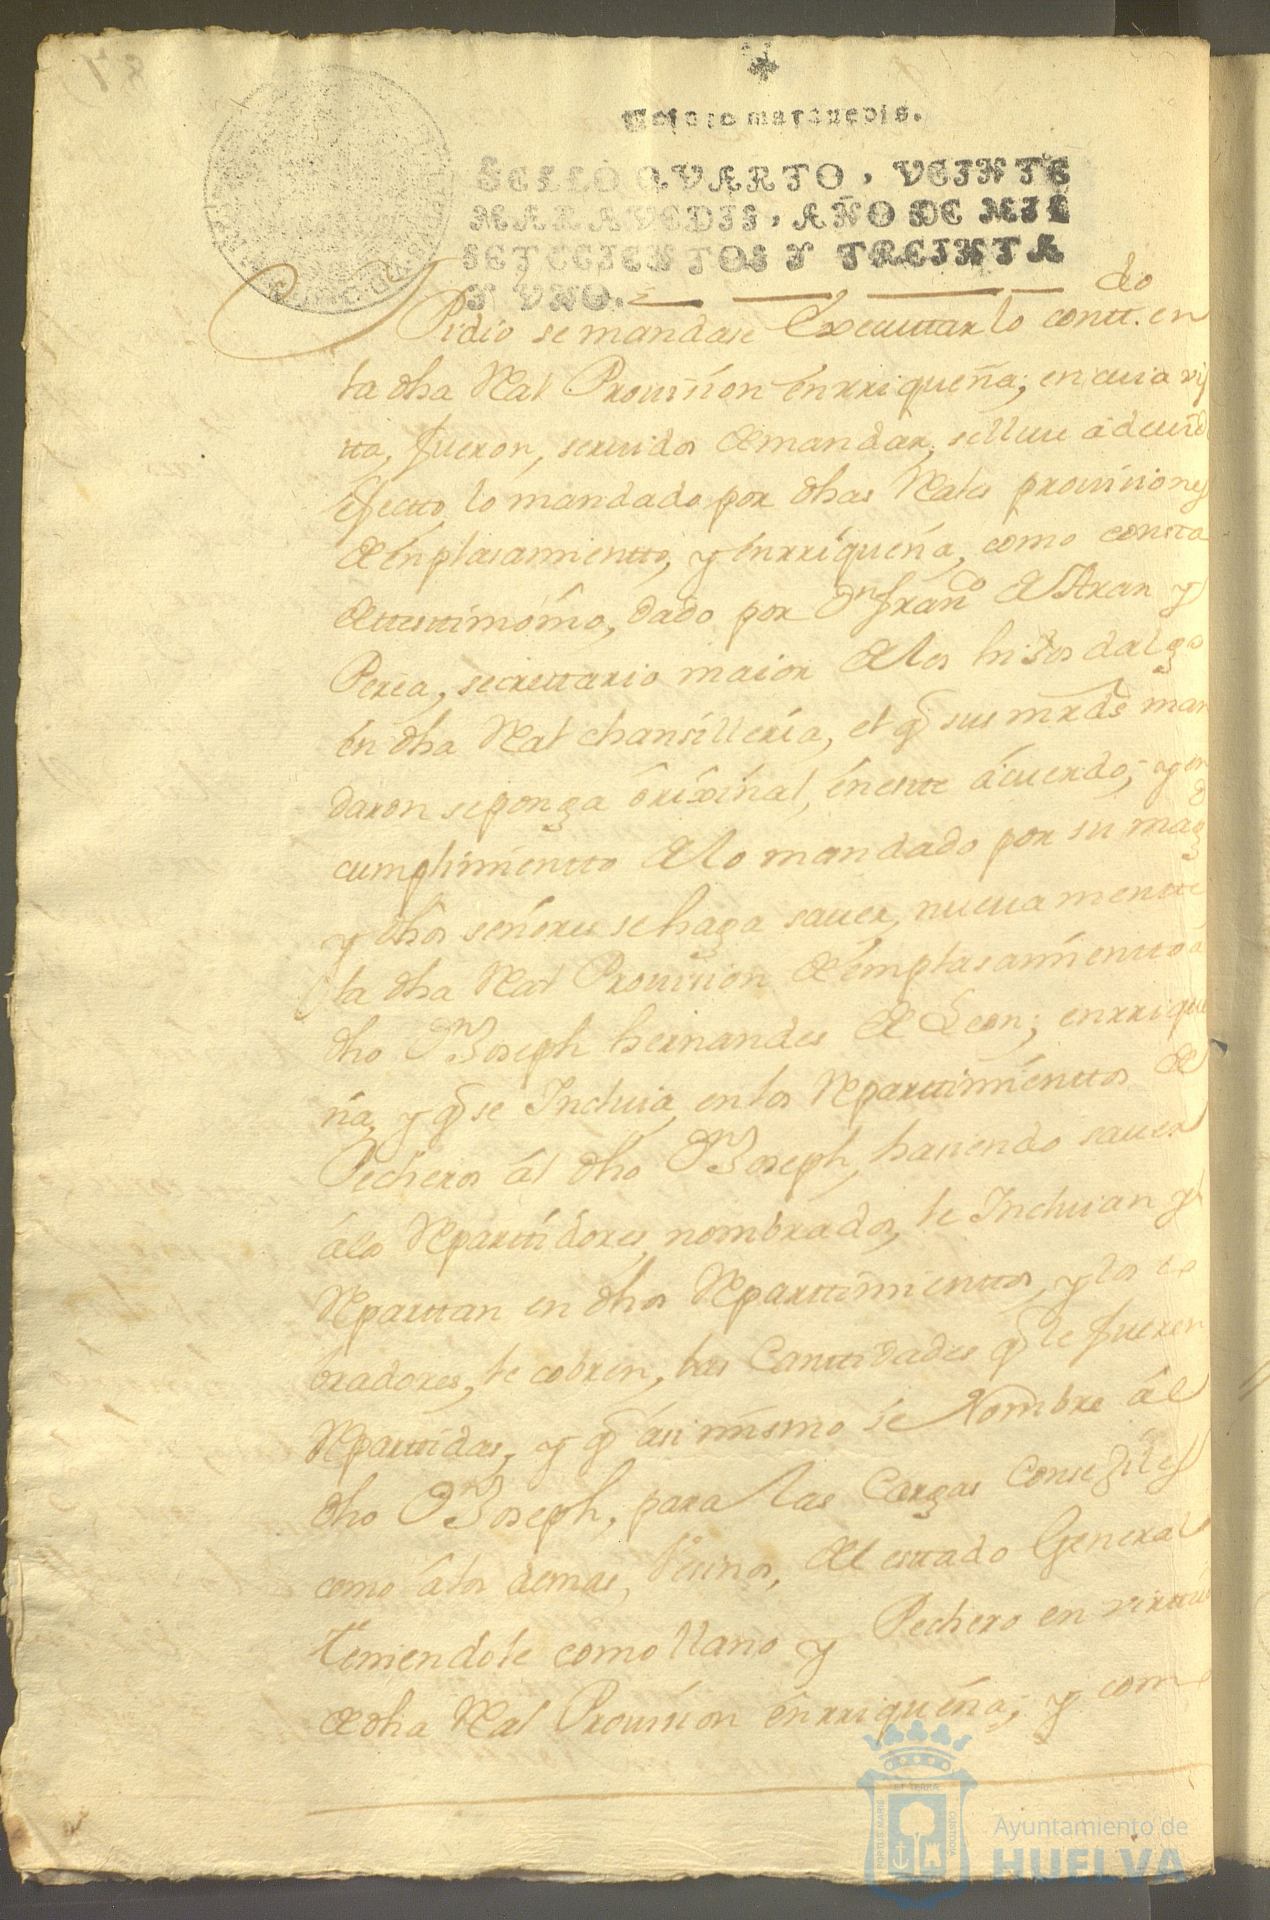 Veinte maravedis.
SELLO QVARTO, VEINTE
MARAVEDIS, AÑO DE MIL
SETECIENTOS Y TREINTA
Y VNO.
Pidio se mandase Executtar lo contt.do en
la dha Real Provision enrriqueña; en cuia vis
tta, fueron, servidos de mandar, se lleve a devido
efectto lo mandado por dhas Reales provisiones
de enplasamientto, y enrriqueña, como consta
de ttesttimonio, dado por Dn franco de
Perea, secrettario maior de los hijos dalgo
en dha Real chansilleria, el q sus mrds man
daron se ponga orixinal, en este acuerdo; y en
cumplimientto de lo mandado por su magd
y dhos señores se haga saver, nuevamente
la dha Real Provision de emplasamientto a
dho Dn Joseph hernandes de Leon; enrrique
ña, y q se Incluia en los Reparttimienttos de
Pecheros al dho Dn Joseph, haciendo saver
a los Reparttidores nombrados, le Incluian y
Reparttan en dhos Reparttimienttos, y los co
bradores, le cobren, las Canttidades q le fueren
Reparttidas, y q asi mismo se Nombre al
dho Dn Joseph, para las Cargas Consegiles
como a los demas, Vesinos, del esttado General
teniendole como llano y Pechero en virttud
de dha Real Provision enrriqueña; y com
ET TERRAE
PORTUS MARIS
CUSTODIA
Ayuntamiento de
HUELVA